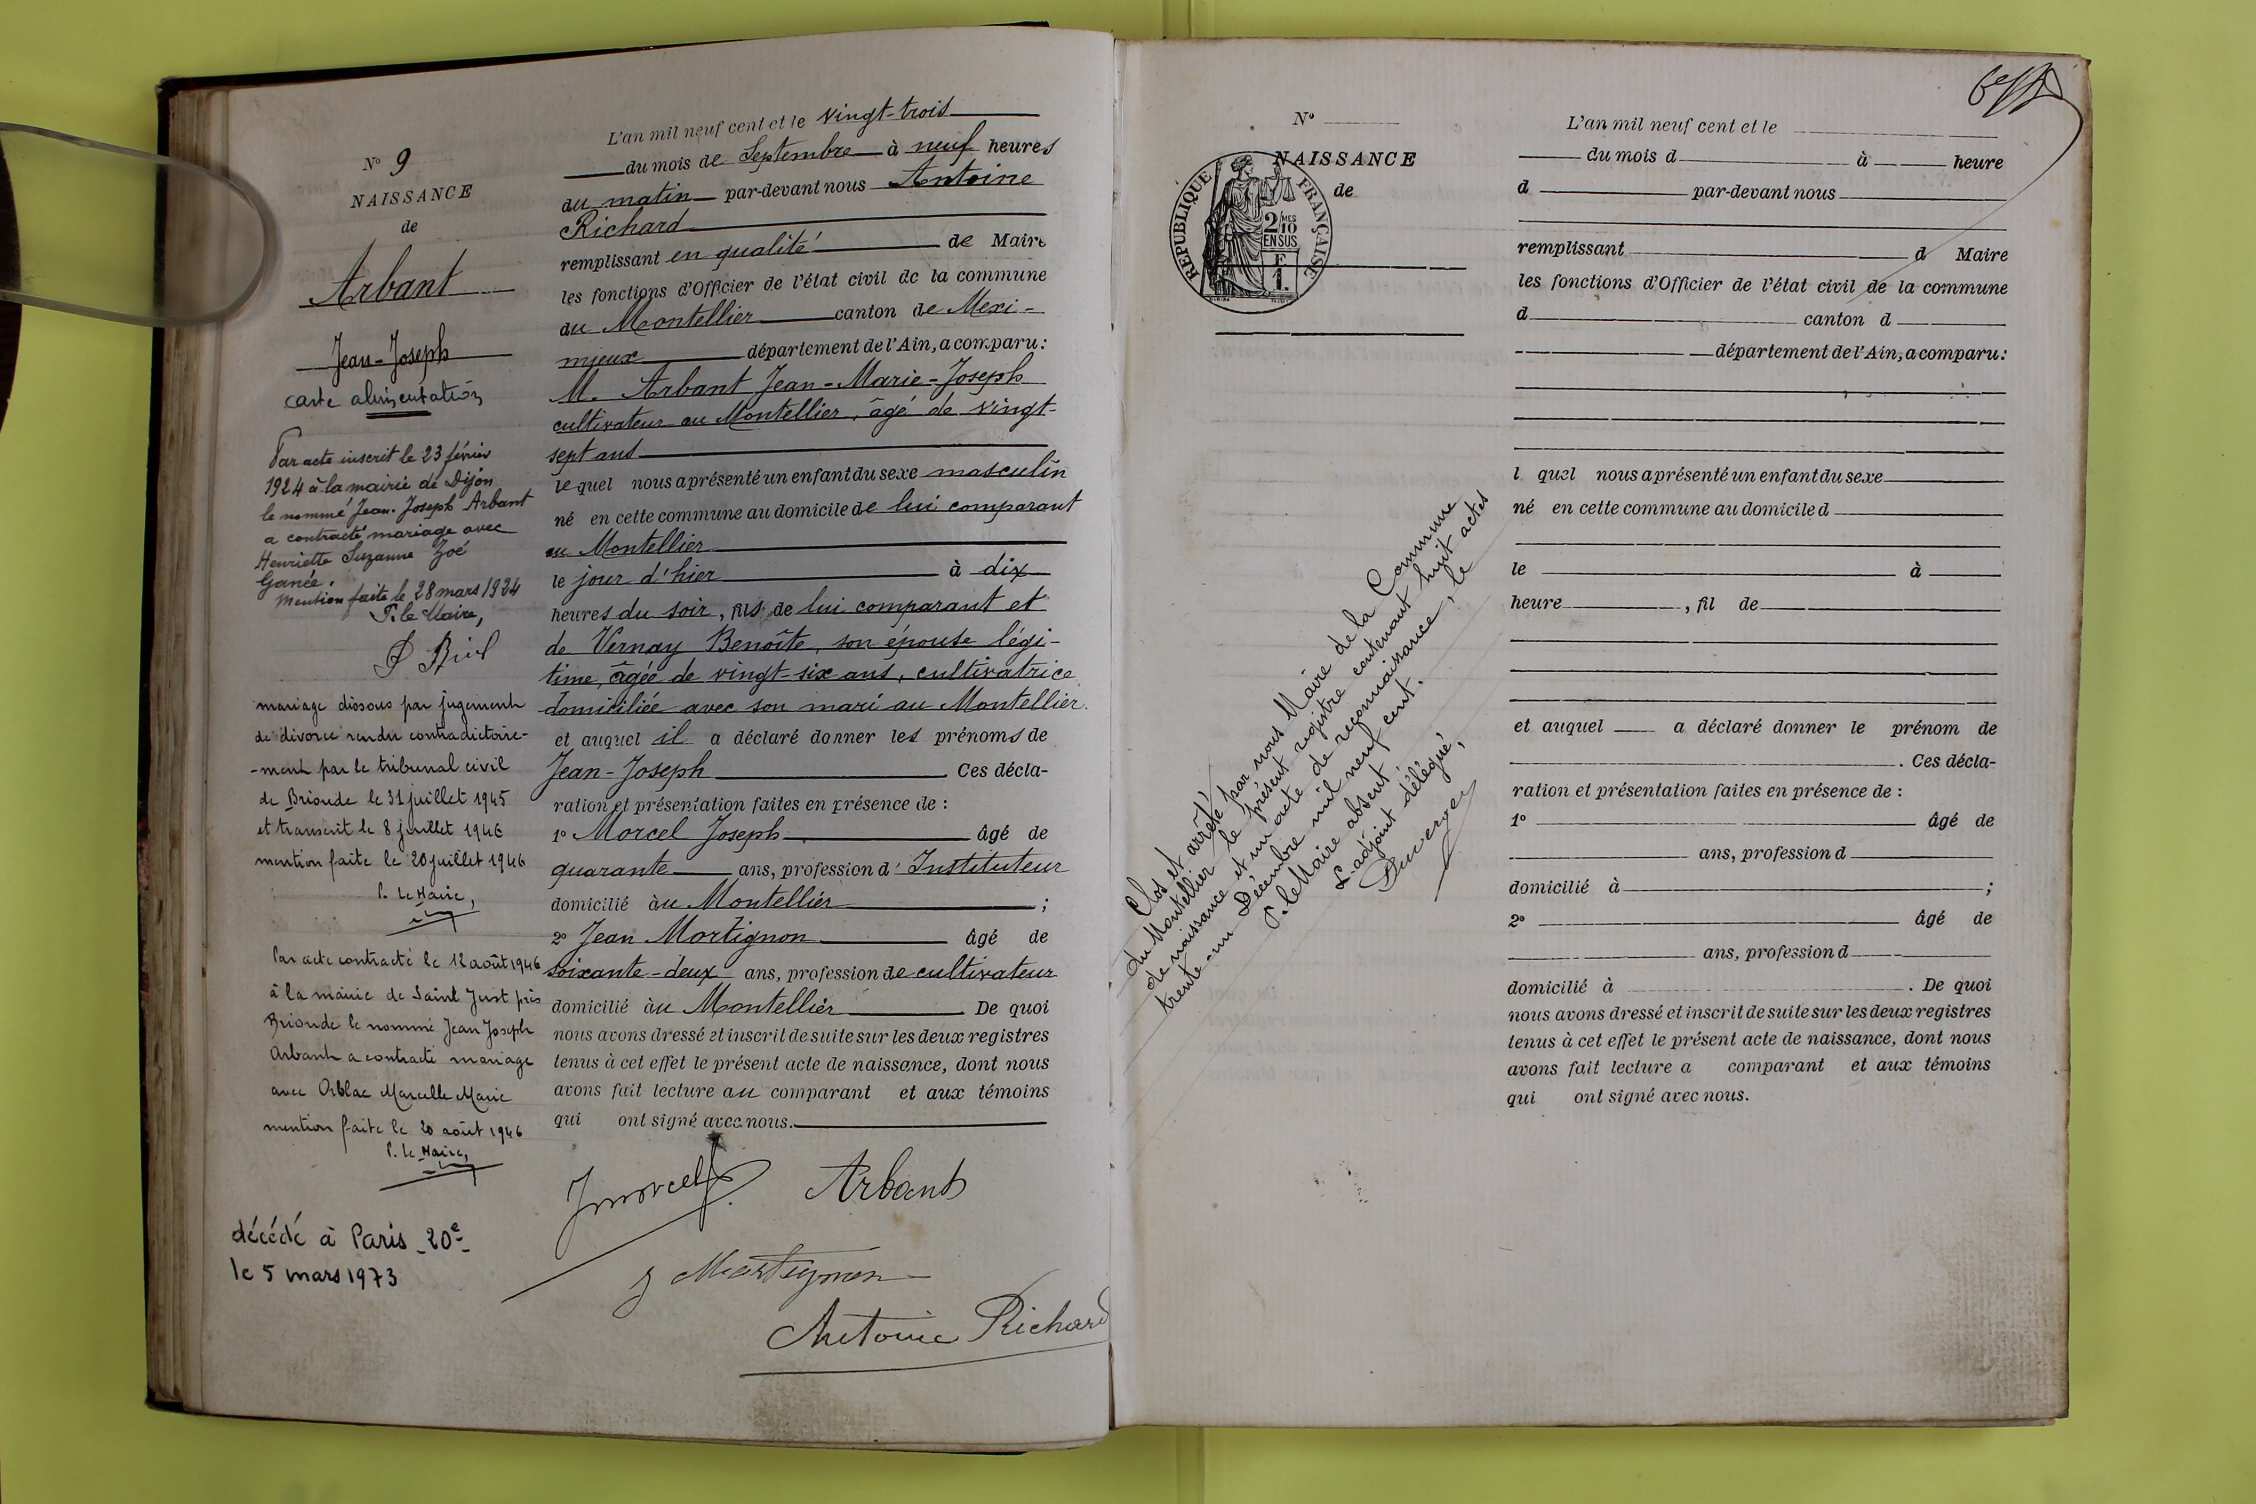 N° 9
NAISSANCE
de
Arbant
Jean-Joseph
carte alimentation
Par acte inscrit le 23 février
1924 à la mairie de Dijon
le nommé Jean-Joseph Arbant
a contracté mariage avec
Henriette Suzanne Zoé
Ganée.
Mention faite le 28 mars 1924
P. le Maire,
mariage dissous par jugement
de divorce rendu contradictoire-
-ment par le tribunal civil
de Brioude le 31 juillet 1945
et transcrit le 8 juillet 1946
mention faite le 20 juillet 1946
P. Le Maire,
Par acte contracté le 12 août 1946
à la mairie de Saint Just près
Brioude le nommé Jean Joseph
Arbant a contracté mariage
avec Orblac Marcelle Marie
mention faite le 20 août 1946
P. Le Maire,
décédé à Paris -20e-
le 5 mars 1973
L'an mil neuf cent et le vingt-trois
du mois de Septembre à neuf heures
du matin par-devant nous Antoine
Richard
remplissant en qualité de Maire
les fonctions d'Officier de l'état civil de la commune
du Montellier canton de Mexi-
mieux département de l'Ain, a comparu:
M. Arbant Jean-Marie-Joseph
cultivateur au Montellier, âgé de vingt-
sept ans
lequel nous a présenté un enfant du sexe masculin
né en cette commune au domicile de lui comparant
au Montellier
le jour d'hier à dix
heures du soir, fils de lui comparant et
de Vernay Benoîte, son épouse légi-
time, âgée de vingt-six ans, cultivatrice
domiciliée avec son mari au Montellier.
et auquel il a déclaré donner les prénoms de
Jean-Joseph Ces décla-
ration et présentation faites en présence de :
1° Morcel Joseph âgé de
quarante ans, profession d'Instituteur
domicilié au Montellier ;
2° Jean Mortignon âgé de
soixante-deux ans, profession de cultivateur
domicilié au Montellier De quoi
nous avons dressé et inscrit de suite sur les deux registres
tenus à cet effet le présent acte de naissance, dont nous
avons fait lecture au comparant et aux témoins
qui ont signé avec nous.
J Morcel Arbant
J Mortignon
Antoine Richard
N°
NAISSANCE
de
RÉPUBLIQUE FRANÇAISE
2/10 MES
EN SUS
F
1.
Clos et arrêté par nous Maire de la Commune
du Montellier le présent registre contenant huit actes
de naissance et un acte de reconnaissance, le
trente-un Décembre mil neuf cent.
P. le Maire absent
L'adjoint délégué,
L'an mil neuf cent et le
du mois d à heure
d par-devant nous
remplissant d Maire
les fonctions d'Officier de l'état civil de la commune
d canton d
département de l'Ain, a comparu:
l quel nous a présenté un enfant du sexe
né en cette commune au domicile d
le à
heure , fil de
et auquel a déclaré donner le prénom de
. Ces décla-
ration et présentation faites en présence de :
1° âgé de
ans, profession d
domicilié à ;
2° âgé de
ans, profession d
domicilié à . De quoi
nous avons dressé et inscrit de suite sur les deux registres
tenus à cet effet le présent acte de naissance, dont nous
avons fait lecture a comparant et aux témoins
qui ont signé avec nous.